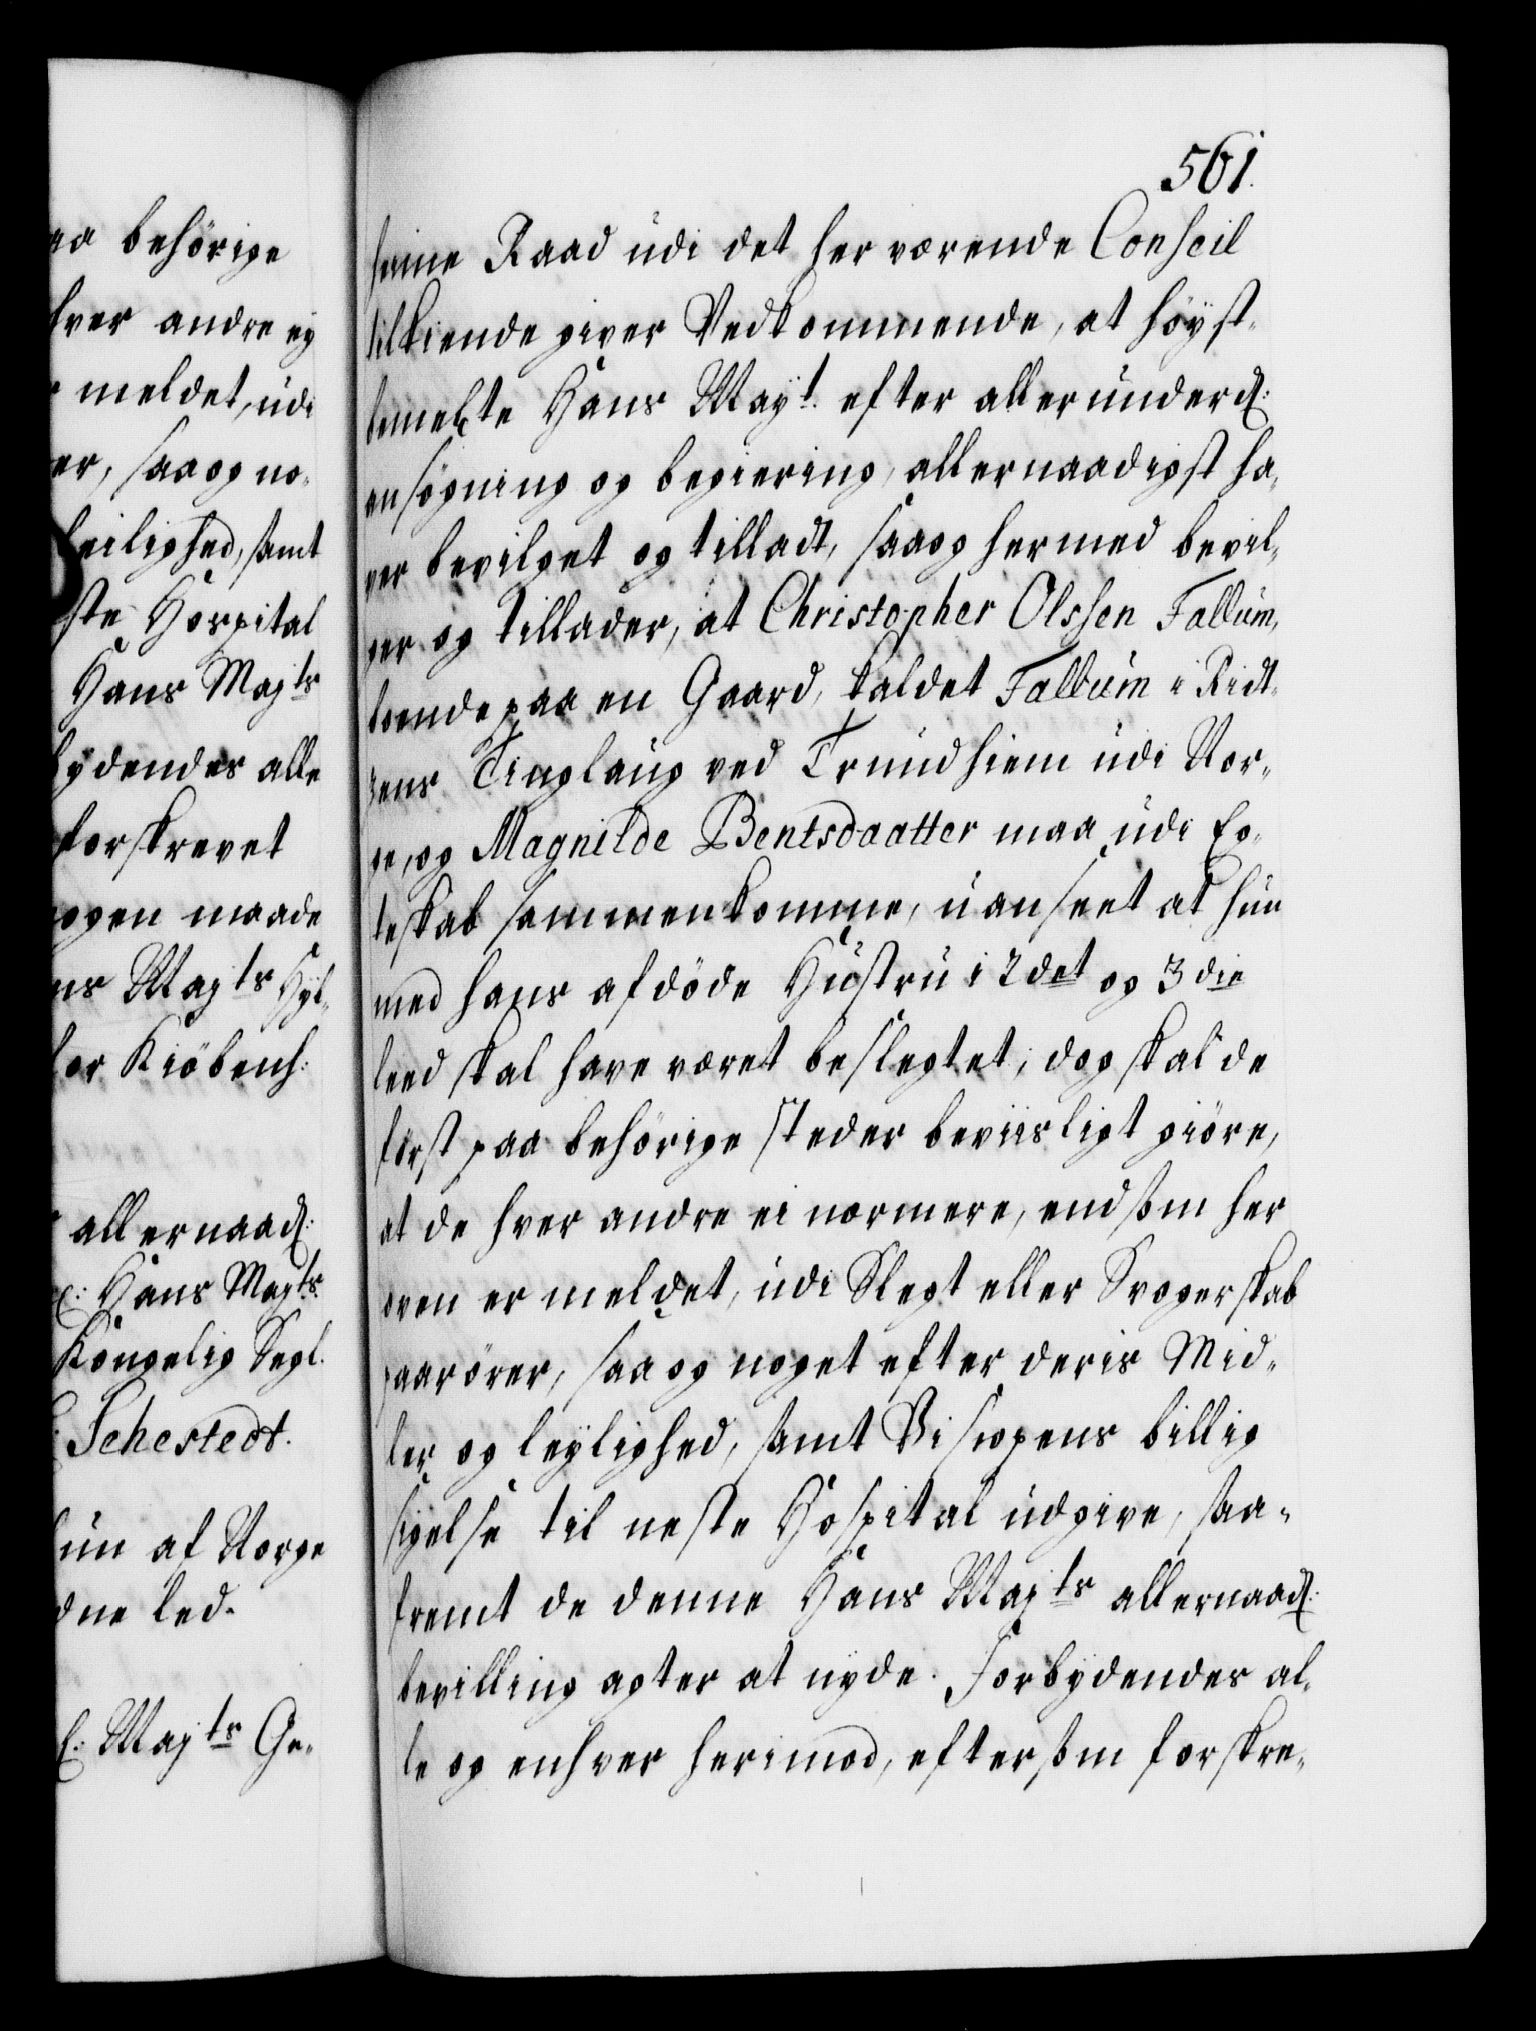 aa behörige
hver andre ey
meldet, udi
er, saa og no-
leilighed, samt
ste Hospital
Hans Majts
bydendes alle
forskrevet
ogen maade
ns Majts Hyl-
for Kiöbenh:
allernaad:
Hans Majts
Kongelig Segl.
Sehestedt.
un af Norge
dne led.
E: Majts Ge-
561.
heime Raad udi det her værende Conseil
tilkiende giver Vedkommende, at höyst-
bemelte Hans Mayt. efter allerunderd:
ansögning og begiering, allernaadigst ha-
ver bevilget og tilladt, saa og hermed bevil-
ger og tillader, at Christopher Olssen Fallum,
boende paa en Gaard, kaldet Fallum i Ridt-
zens Tinglaug ved Trundhiem udi Nor-
ge, og Magnilde Bentsdaatter maa udi Eg-
teskab sammenkomme, uanseet at hun
med hans afdöde Hustru i 2det og 3die
leed skal have været beslegtet; dog skal de
först paa behörige steder beviisligt giöre,
at de hver andre ei nærmere, end som her
oven er meldet, udi Slegt eller Svogerskab
paarörer, saa og noget efter deris Mid-
ler og leylighed, samt Biscopens billig
sigelse til neste Hospital udgive, saa-
fremt de denne Hans Majts allernaad:
bevilling agter at nyde. Forbydendes al-
le og enhver herimod, eftersom forskre-